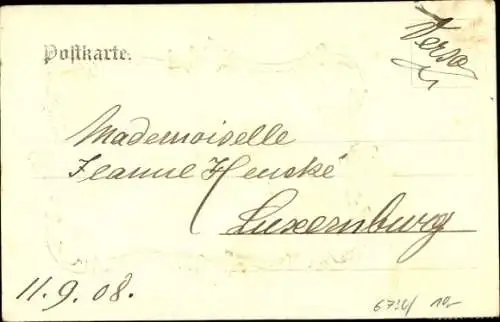 Postkarte.
Verso
Mademoiselle
Jeanne Henské
Luxemburg
11.9.08.
10.-